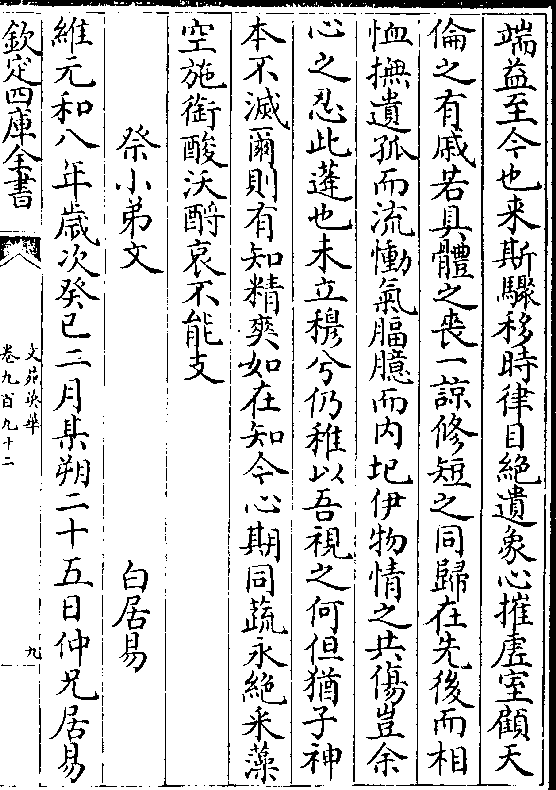 端益至今也来斯驟移時律目絶遺象心摧虚室顧天
倫之有戚若具體之喪一諒修短之同歸在先後而相
恤撫遺孤而流慟氣腷臆而内圮伊物情之共傷豈余
心之忍此蓮也未立穆兮仍稚以吾視之何但猶子神
本不滅爾則有知精爽如在知今心期同蔬永絶釆藻
空施銜酸沃酹哀不能支
祭小弟文
白居易
維元和八年歲次癸巳二月某朔二十五日仲兄居易
欽定四庫全書
文苑英華
卷九百九十二
九